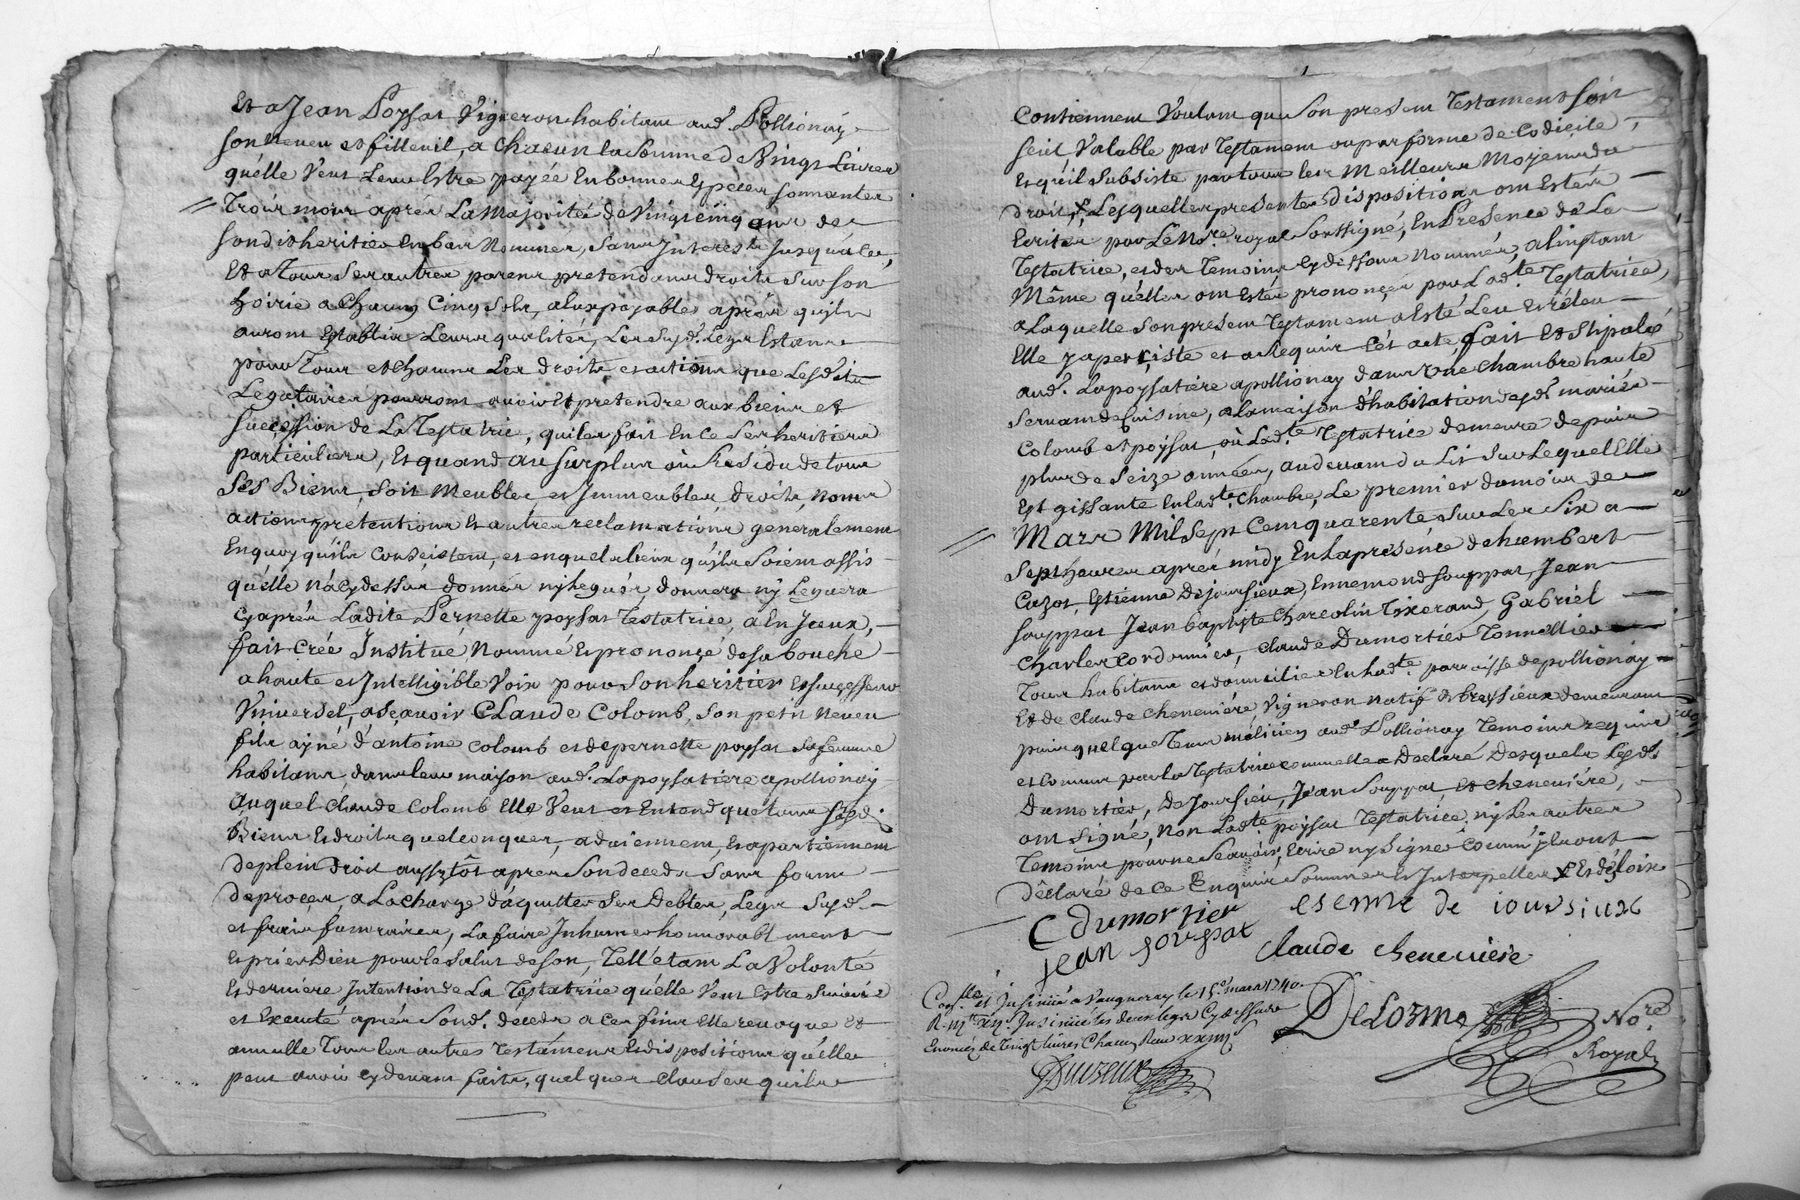 Et a Jean Poyssat Vigneron habitant aud. Pollionay
son neveu et filleuil, a chacun la somme de Vingt Livres
qu'elle Veut Leur Estre payée En bonnes Especes sonnantes
Trois mois aprés La Majorité de Vingt cinq ans de
sondit heritier En bas Nommer, sans Interest Jusqu'alor,
Et a Tous ses autres parens pretendants droits sur son
hoirie a chacun Cinq sols, a eux payables aprés qu'ils
auront Establis Leurs qualités, Les susd. Legs Estants
pour Tous et chacuns Les droits et actions que Lesdits
Legataires pourront avoir et pretendre aux biens et
succession de La Testatrice, qu'il a fait En ce ses heritiers
particuliers, Et quand au surplus où Residu de tous
Ses Biens, soit Meubles et Immeubles, droits, noms
actions pretentions Et autres reclamations generalement
En quoy qu'ils Consistent, et en quels lieux qu'ils soient assis
qu'elle n'a cy dessus donnés ny Legués, donnera ny Leguera
cy aprés Ladite Pernette poyssat Testatrice, a En Iceux,
fait Créé Institué, Nommé Et prononçé de sa bouche
a haute et Intelligible Voix pour son heritier Et successeur
Universel, a Sçavoir Claude Colomb, son petit neveu
fils ayné d'antoine Colomb et de pernette poyssat sa femme
habitans dans leur maison aud. Lapoyssatiere a pollionay
auquel Claude Colomb Elle Veut et Entend que tous sesd.
Biens Et droits quelconques, adviennent, Et apartiennent
de plein droit aussytôt apres son deceds sans forme
de proçes, a La charge d'aquitter ses Debtes, Legs susd.
et frais funeraires, La faire Inhumer honnorablement
Et prier Dieu pour le salut de son, Tell'étant La Volonté
Et derniere Intention de La Testatrice qu'elle Veut Estre Suivie
et Executé aprés Sond. deceds a ces fins Elle revoque Et
annulle Tous les autres Testamens Et dispositions qu'elle
peut avoir cy devant faits, quelques clauses qu'ils
Contiennent Voulant que son present Testament soit
soit Valable par Testament ou par forme de Codicile,
Et qu'il subsiste par tous les Meilleurs Moyens du
droit, Lesquelles presentes dispositions ont Estér
Ecrites par Le No.re royal soussigné, En Presence de La
Testatrice, et des Temoins cy dessous Nommés, a l'instant
Même qu'elles ont Estér prononçés par Lad.te Testatrice,
a Laquelle son present Testament a Esté Leu Et Releu
Elle y a persiste et a Requis cét acte, fait Et Stipulé
aud. Lapoyssatiére a pollionay dans une chambre haute
servant de Cuisine, a la maison d'habitation desd. mariés
Colomb et poyssat, où Lad.te Testatrice demeure depuis
plus de Seize années, au devant du Lit sur Lequel Elle
Est gissante En lad.te chambre, Le premier du mois de
Mars Mil Sept Cent quarente sur Les Six a
Sept heures aprés midy En La presence de humbert
Cuzot, Estienne Dejoursieux, Ennemond souppat, Jean
souppat Jean baptiste Charcolin Tixerand, Gabriel
Charles Cordonnier, Claude Dumortier Tonnellier
Tous habitans et domicilies En lad.te parroisse de pollionay
Et de Claude Cheneviére Vigneron natif de breyssieux demeurant
puis quelque Tems aud. Pollionay Temoins requis
et connus par la Testatrice comme elle a Declaré Desquels Lesd.
Dumortier, Dejoursieu, Jean Souppat, Et cheneviére,
ont Signé, non Lad.te poyssat Testatrice, ny Les autres
Temoins pour ne sçavoir, Ecrire ny Signer comm'ils ont
Déclaré de ce Enquis Sommer Et Interpeller
C Dumortier estienne de ioursiux
jean soupat Claude Cheneviere
Con.lle et Insinué a Vaugneray le 15.e mars 1740.
Insinué les deux legs Cy dessus
Enoncés de Vingt livres Chacun
Delorme No.re
Royal